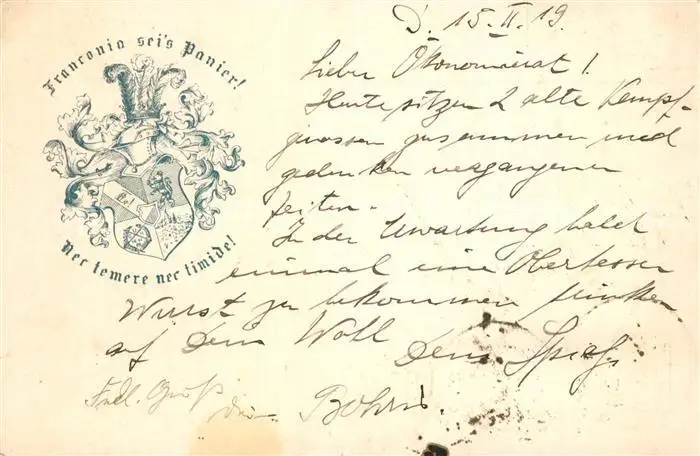 Franconia sei's Panier!
Nec temere nec timide!
D. 15.II.19.
Lieber Ökonomierat!
Heute sitzen 2 alte Kampf-
genossen zusammen und
gedenken vergangener
Zeiten.
In der Erwartung bald
einmal eine
Wurst zu bekommen trinken
auf Dein Wohl
Dein
Frdl. Gruß